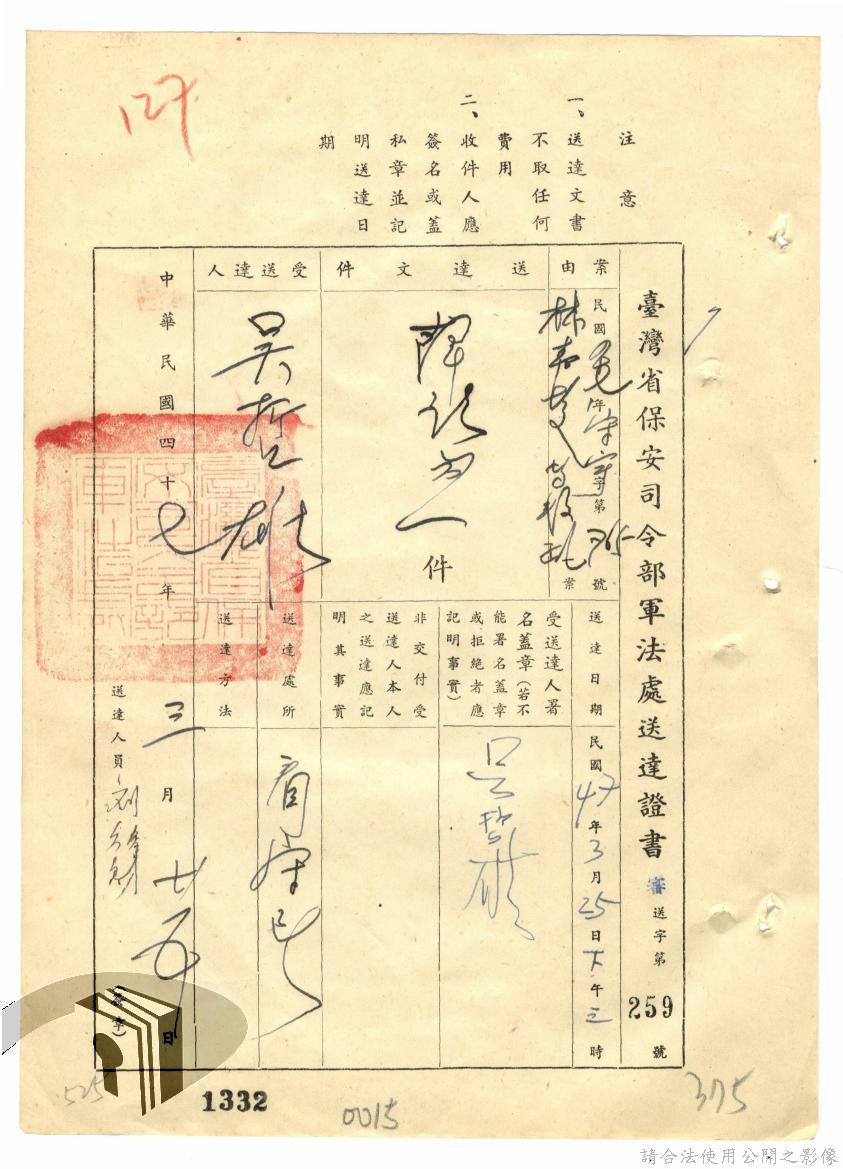 127
注意
一、送達文書
不取任何
費用
二、收件人應
簽名或蓋
私章並記
明送達日
期
臺灣省保安司令部軍法處送達證書
審送字第259號
案由
民國 年 字第 號
案
送達文件
件
受送達人
吳哲雄
送達日期
民國47年3月25日下午三時
受送達人署
名蓋章(若不
能署名蓋章
或拒絕者應
記明事實)
吳哲雄
非交付受
送達人本人
之送達應記
明其事實
送達處所
看守所
送達方法
中華民國四十七年三月廿五日
送達人員
(簽章)
525
1332
0015
375
請合法使用公開之影像